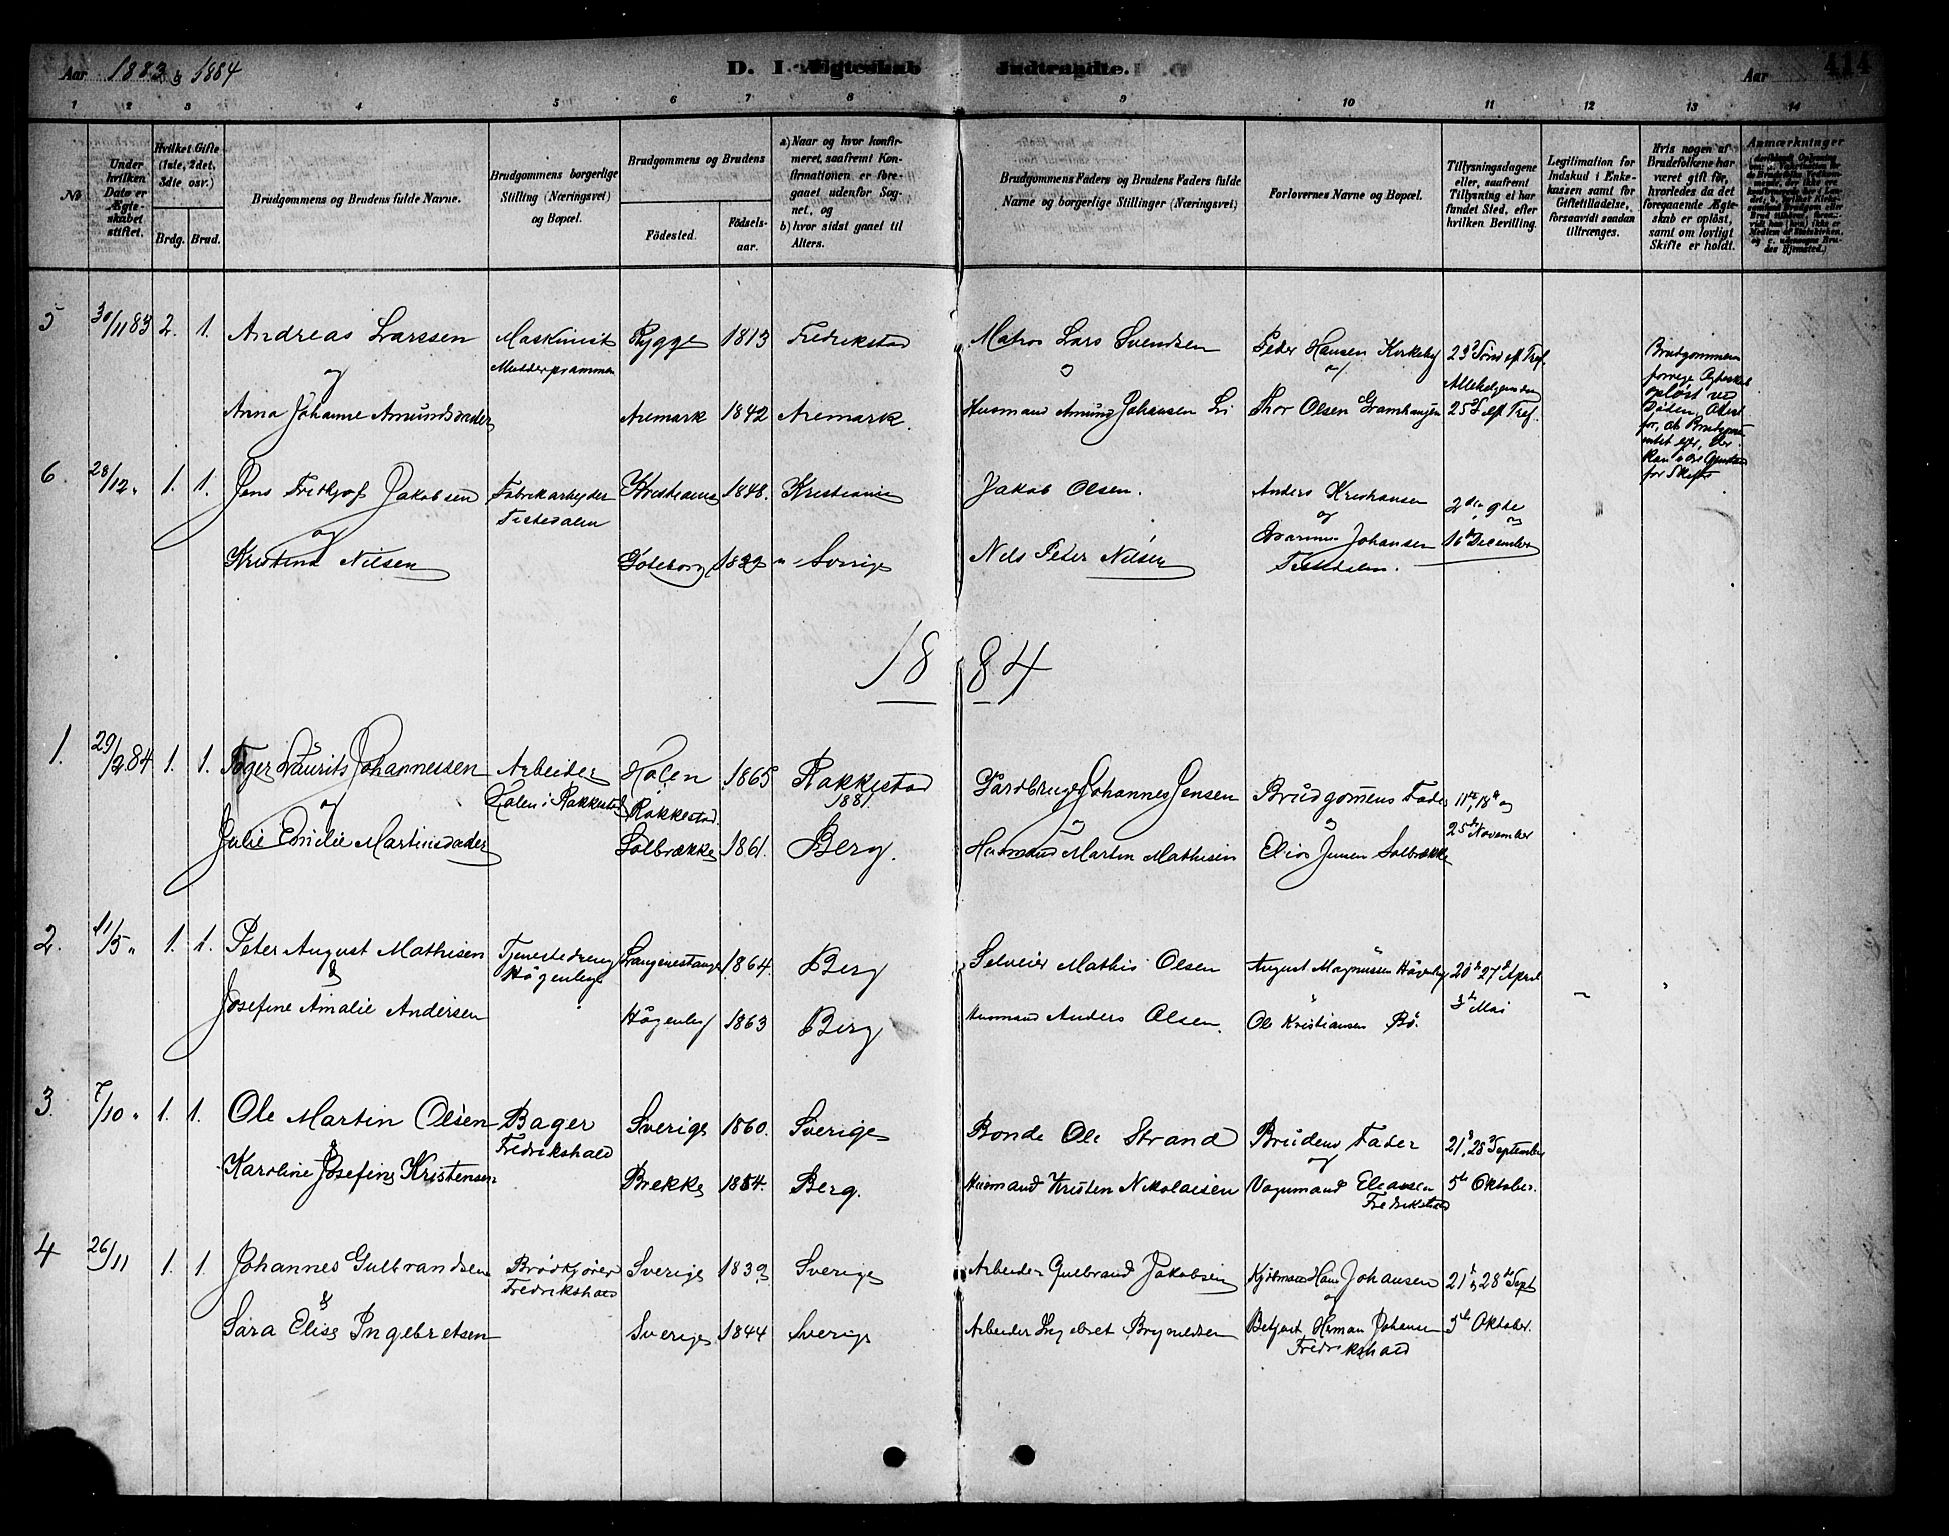 Aar 1883 & 1884
D. I Ægteskab Indtraadte.
Aar
414
1 2 3 4 5 6 7 8 9 10 11 12 13 14
No
Under hvilken Dato er Ægteskabet stiftet.
Hvilket Gifte (1ste, 2det, 3die osv.)
Brdg. Brud.
Brudgommens og Brudens fulde Navne.
Brudgommens borgerlige Stilling (Næringsvei) og Bopæl.
Brudgommens og Brudens
Födested.
Födsels-aar.
a) Naar og hvor konfirmeret, saafremt Konfirmationen er foregaaet udenfor Sognet, og
b) hvor sidst gaaet til Alters.
Brudgommens Faders og Brudens Faders fulde Navne og borgerlige Stillinger (Næringsvei)
Forlovernes Navne og Bopæl.
Tillysningsdagene eller, saafremt Tillysning ei har fundet Sted, efter hvilken Bevilling.
Legitimation for Indskud i Enkekassen samt for Giftetilladelse, forsaavidt saadan tiltrænges.
Hvis nogen af Brudefolkene har været gift før, hvorledes da det foregaaende Ægteskab er oplöst, samt om lovligt Skifte er holdt.
Anmærkninger
5 30/11 83 2. 1. Andreas Larssen Maskinist Rygge 1813 Fredrikstad Matros Lars Svendsen Peder Hansen Kirkeby 23d Sønd eft Tref.
og Mudderprammen og og Allehelgensdag
Anna Johanne Amundsdader Aremark 1842 Aremark. Husmand Amund Johansen Li Thor Olsen 25d S eft Tref.
Brudgommens
forrige Ægteskab
opløst ved
Døden,
6. 28/12 " 1. 1. Jens Fridtjof Jakobsen Fabrikarbejder Kristiania 1848. Kristiania Jakob Olsen. Anders Kristiansen 2den, 9de
og Tistedalen og og
Kristine Nilsen Göteborg 1839 Sverige Nils Peter Nilsen Johansen 16de December
Tistedalen.
1884
1. 29/2 84 1. 1. Laurits Johannessen Arbeider Holen 1865 Rakkestad Gardbruger Johannes Jensen Brudgomens Fader 11te, 18de og
og Holen i Rakkestad Rakkestad. 1881. og og 25de November
Julie Emilie Martinsdader Solbrække 1861. Berg. Husmand Martin Mathisen Jensen Solbrække
2. 11/5 " 1. 1. Peter August Mathisen Tjenestedreng 1864. Berg Selveier Mathis Olsen August Magnussen 20de 27de April
& 3de Mai
Josefine Amalie Andersen 1863 Berg Husmand Anders Olsen. Ole Kristiansen Bö.
3 7/10 " 1. 1. Ole Martin Olsen Bager Sverige 1860. Sverige Bonde Ole Strand Brudens Fader 21d, 28d September
& Fredrikshald og
Karoline Josefine Kristensen Brekke 1854. Berg. Husmand Kristen Nikolaisen Vognmand Eleasen 5te Oktober.
4 26/11 1. 1. Johannes Gulbrandsen Brödkjörer Sverige 1839 Sverige Arbeider Gulbrand Jakobsen Hans Johansen 21de, 28de Sept
& Fredrikshald og
Sara Elise Ingebretsen Sverige 1844 Sverige Arbeider Ingebret Bryneldsen Herman Johansen 5te Oktober.
Fredrikshald